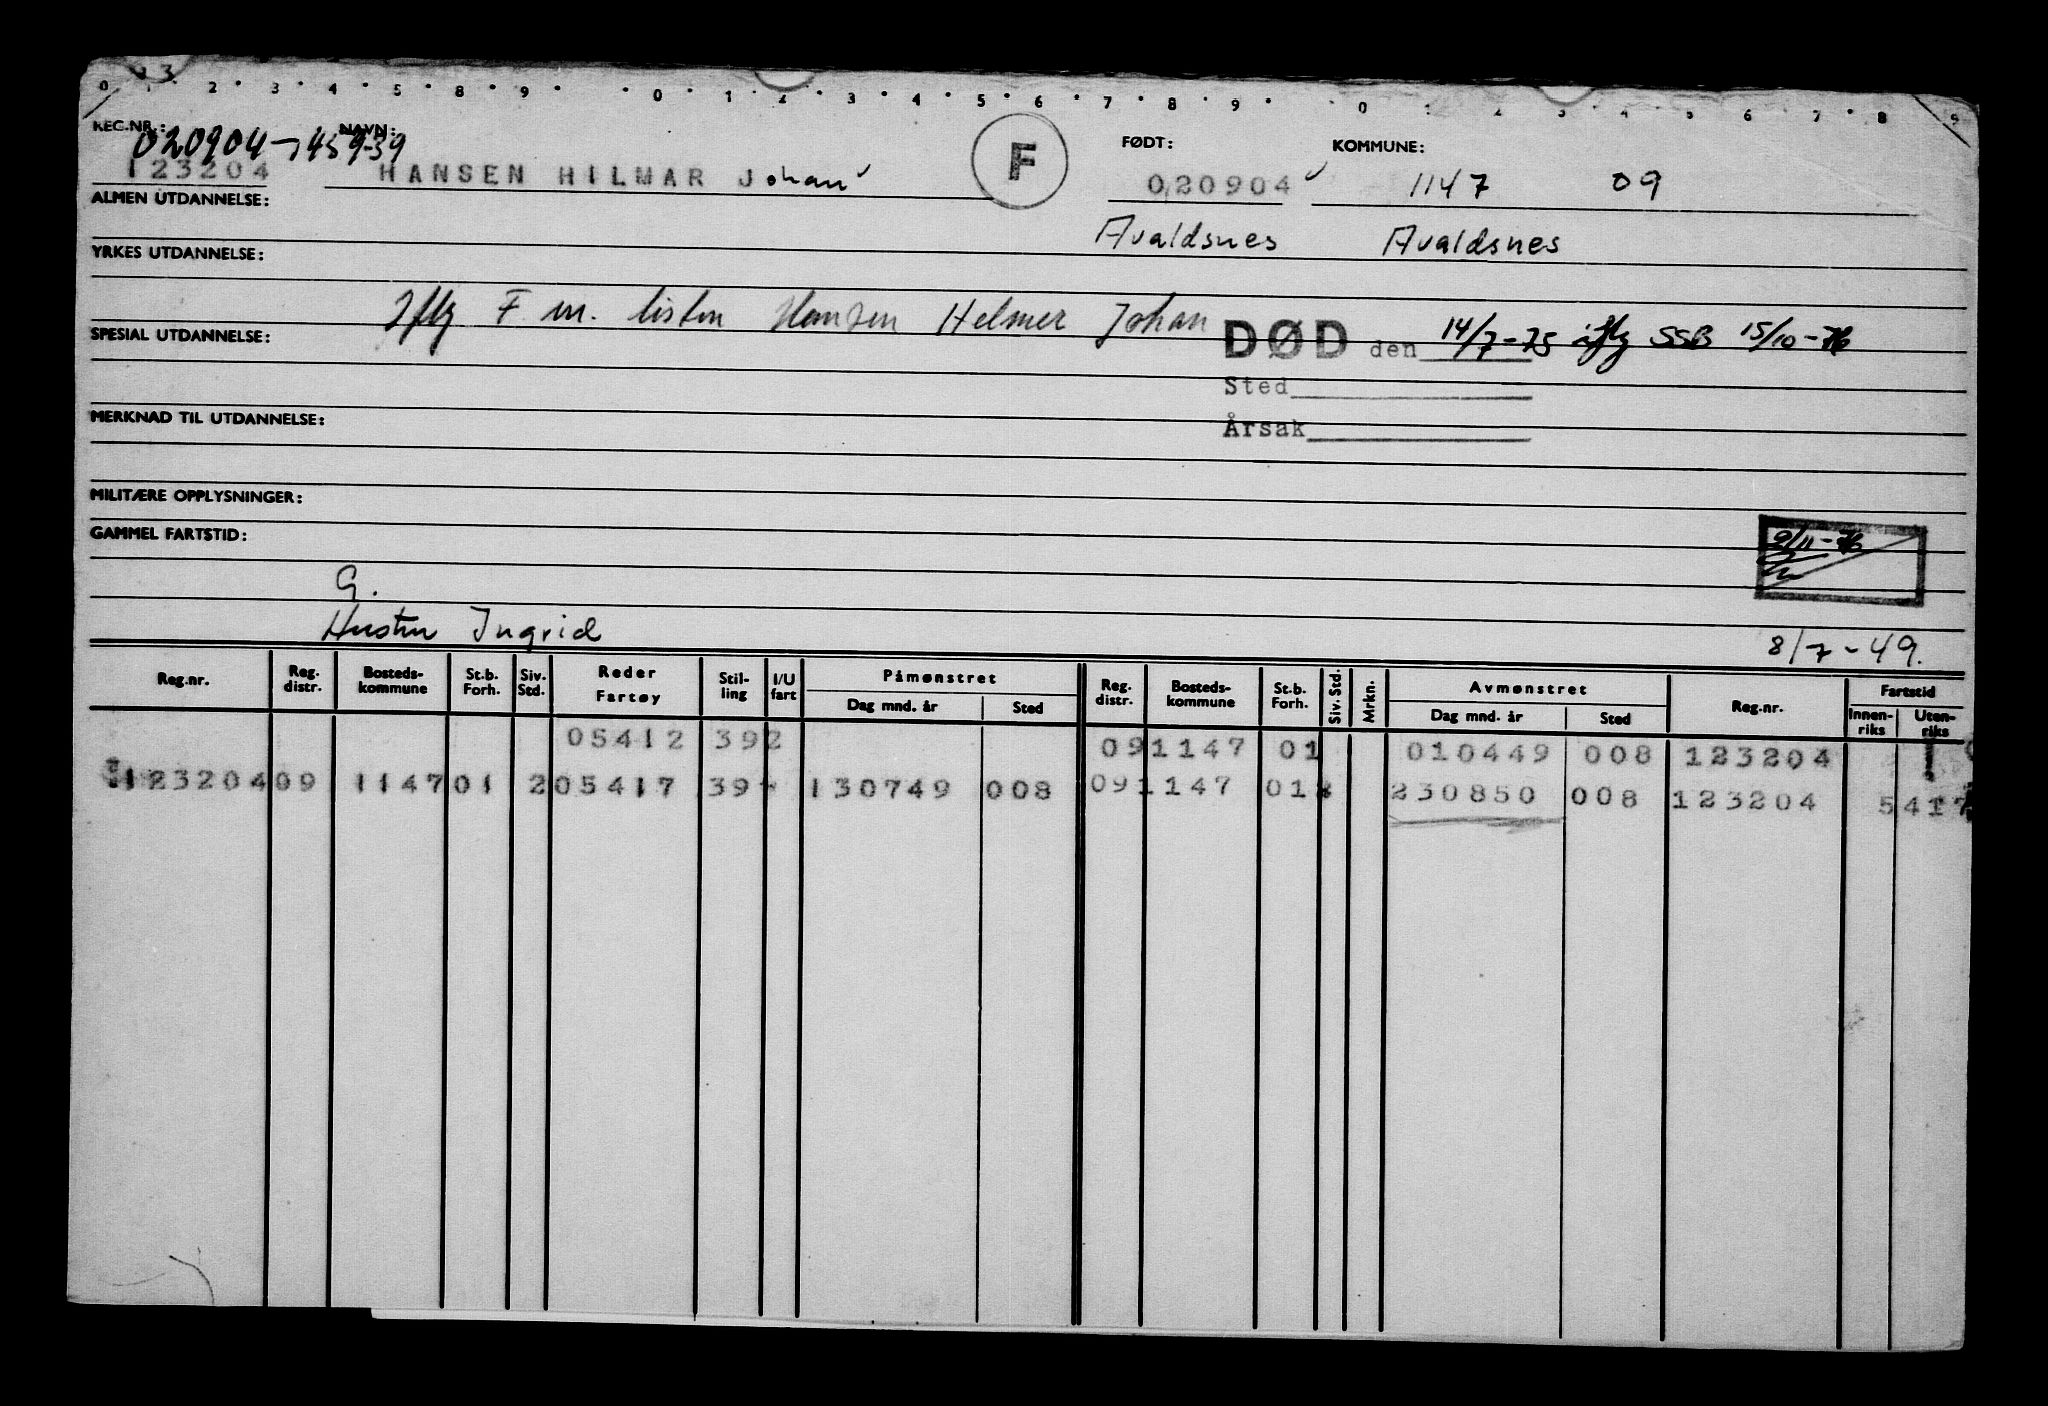 0 1 3 2 3 4 5 8 9 0 1 2 3 4 5 6 7 8 9 0 1 2 3 4 5 6 7 8 9
REG.NR.: NAVN: FØDT: KOMMUNE:
020904-14539
123204 HANSEN HILMAR Johan F 020904 1147 09
ALMEN UTDANNELSE:
Avaldsnes Avaldsnes
YRKES UTDANNELSE:
Iflg F.m. listen Hansen Helmer Johan
SPESIAL UTDANNELSE:
DØD den 14/7-75 iflg SSB 15/10-76
Sted
Årsak
MERKNAD TIL UTDANNELSE:
MILITÆRE OPPLYSNINGER:
GAMMEL FARTSTID:
9/11-76
G.
Hustru Ingrid
8/7-49.
Reg.nr. Reg. distr. Bosteds-kommune St.b. Forh. Siv. Std. Reder Fartøy Stil-ling I/U fart Påmønstret Dag mnd. år Sted Reg. distr. Bosteds-kommune St.b. Forh. Siv. Std. Mrkn. Avmønstret Dag mnd. år Sted Reg.nr. Fartstid Innen-riks Uten-riks
05412 392 09 1147 01 010449 008 123204
123204 09 1147 01 2 05417 39 130749 008 09 1147 01 230850 008 123204 5417